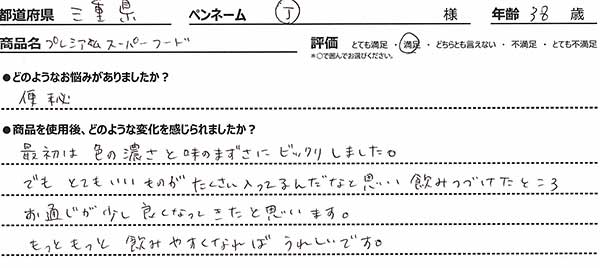 都道府県 三重県 ペンネーム 丁 様 年齢 38 歳
商品名 プレミアムスーパーフード 評価 とても満足 ・ 満足 ・ どちらとも言えない ・ 不満足 ・ とても不満足
*○で囲んでお選びください。
●どのようなお悩みがありましたか？
便秘
●商品を使用後、どのような変化を感じられましたか？
最初は 色の濃さと味のまずさに ビックリしました。
でも とてもいいものが たくさん入ってるんだなと思いい 飲みつづけたところ
お通じが少し良くなってきたと思います。
もっともっと 飲みやすくなれば うれしいです。